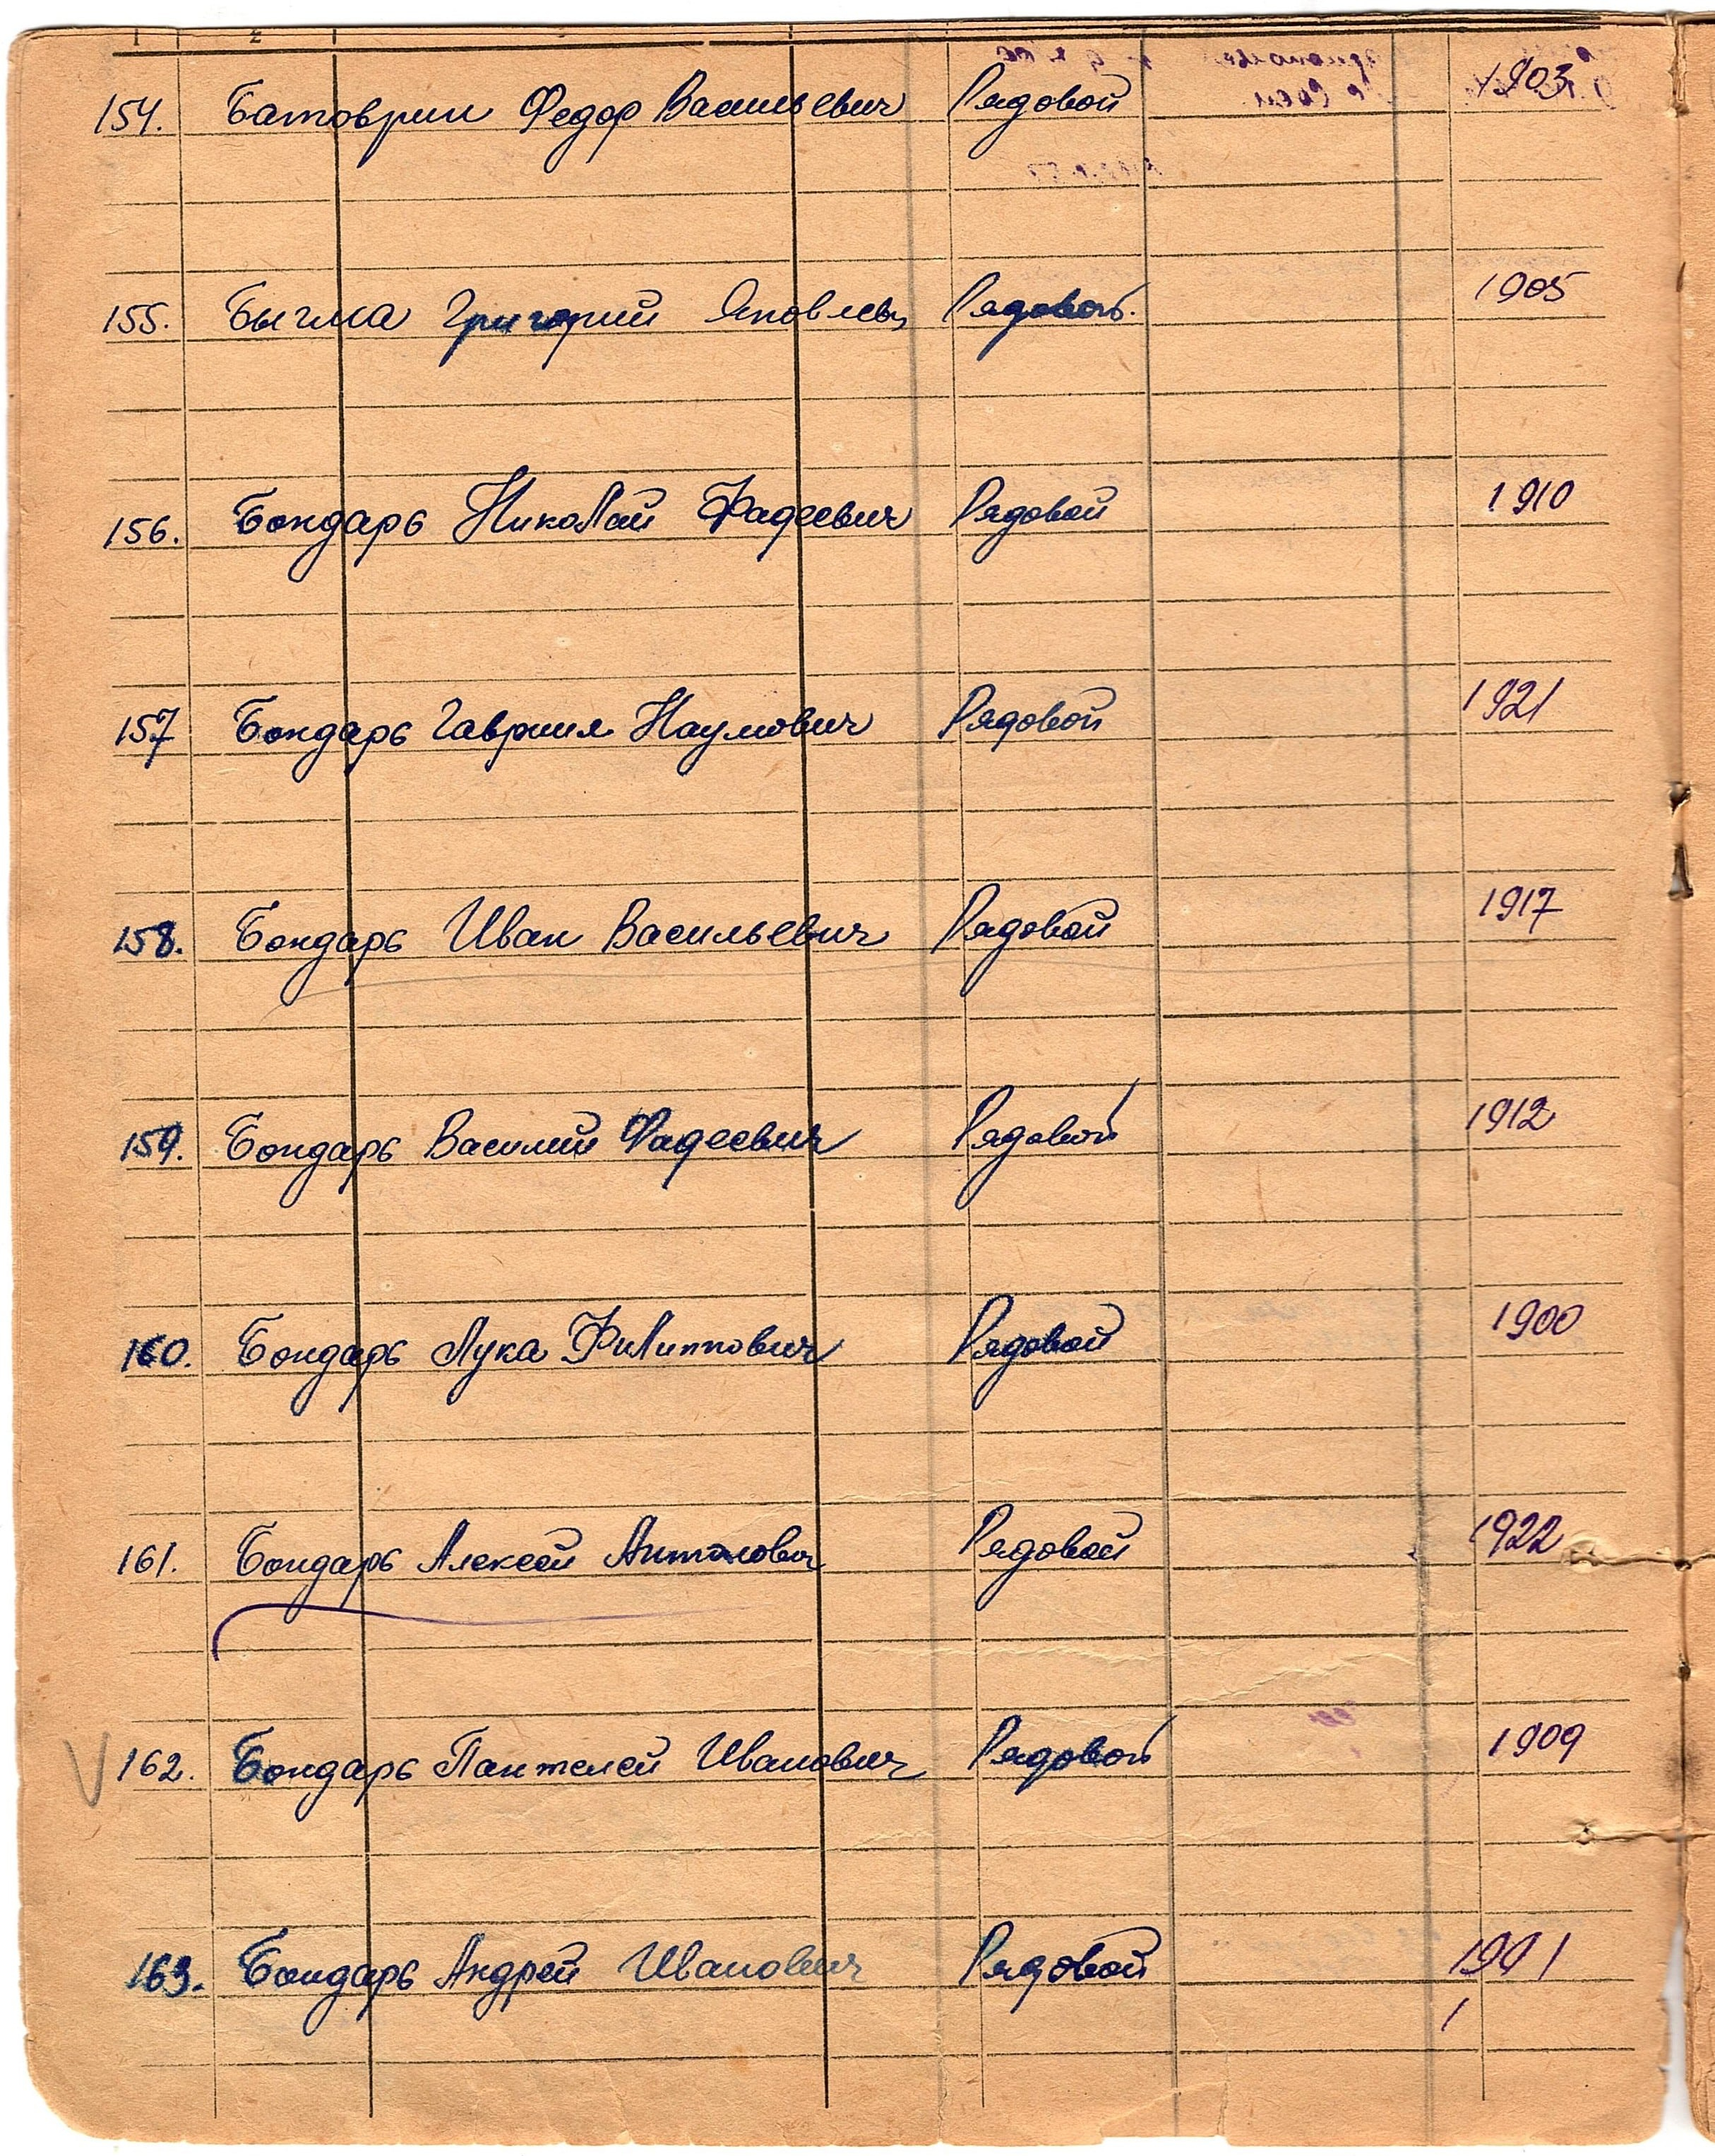 1 2
154. Батоврин Федор Васильевич Рядовой 1903
155. Быгма Григорий Яковлев Рядовой. 1905
156. Бондарь Николай Фадеевич Рядовой 1910
157 Бондарь Гавриил Наумович Рядовой 1921
158. Бондарь Иван Васильевич Рядовой 1917
159. Бондарь Василий Фадеевич Рядовой 1912
160. Бондарь Лука Филиппович Рядовой 1900
161. Бондарь Алексей Рядовой 1922
V 162. Бондарь Пантелей Иванович Рядовой 1909
163. Бондарь Андрей Иванович Рядовой